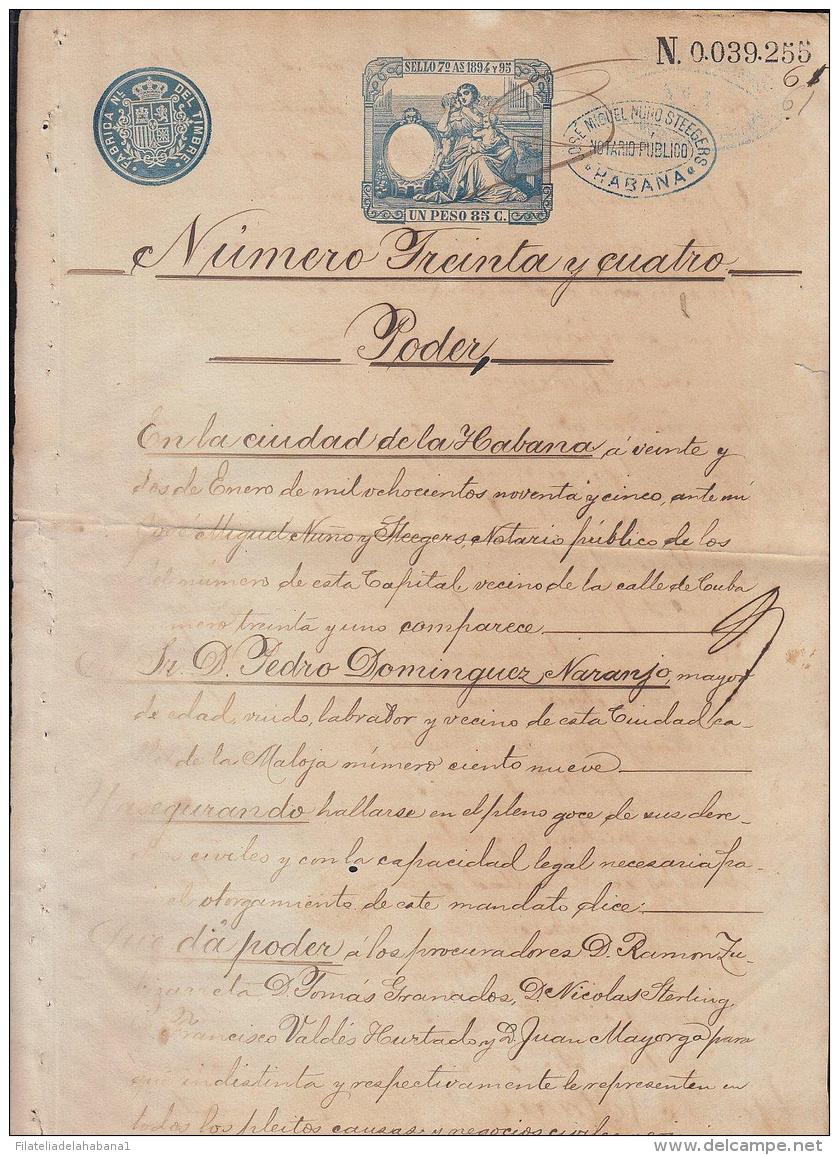 N. 0.039.255
61
61
SELLO 7º AS 1894 Y 95
FABRICA NL. DEL TIMBRE
JOSÉ MIGUEL NUÑO STEEGERS
NOTARIO PUBLICO
HABANA
UN PESO 85 C.
Número Treinta y cuatro
Poder,
En la ciudad de la Habana á veinte y
dos de Enero de mil ochocientos noventa y cinco, ante mi
José Miguel Nuño y Steegers, Notario público de los
del número de esta Capital, vecino de la calle de Cuba
número treinta y uno comparece
Sr. D. Pedro Dominguez Naranjo, mayor
de edad, viudo, labrador y vecino de esta Ciudad ca-
de la Maloja número ciento nueve
Y asegurando hallarse en el pleno goce de sus dere-
chos civiles y con la capacidad legal necesaria pa-
el otorgamiento de este mandato dice:
Que dá poder á los procuradores D. Ramon Zu-
bizarreta D. Tomás Granados, D. Nicolas Sterling,
Francisco Valdés Hurtado y D. Juan Mayorga para
que indistinta y respectivamente le representen en
todos los pleitos causas y negocios civiles
Filateliadelahabana1
delcampe.net